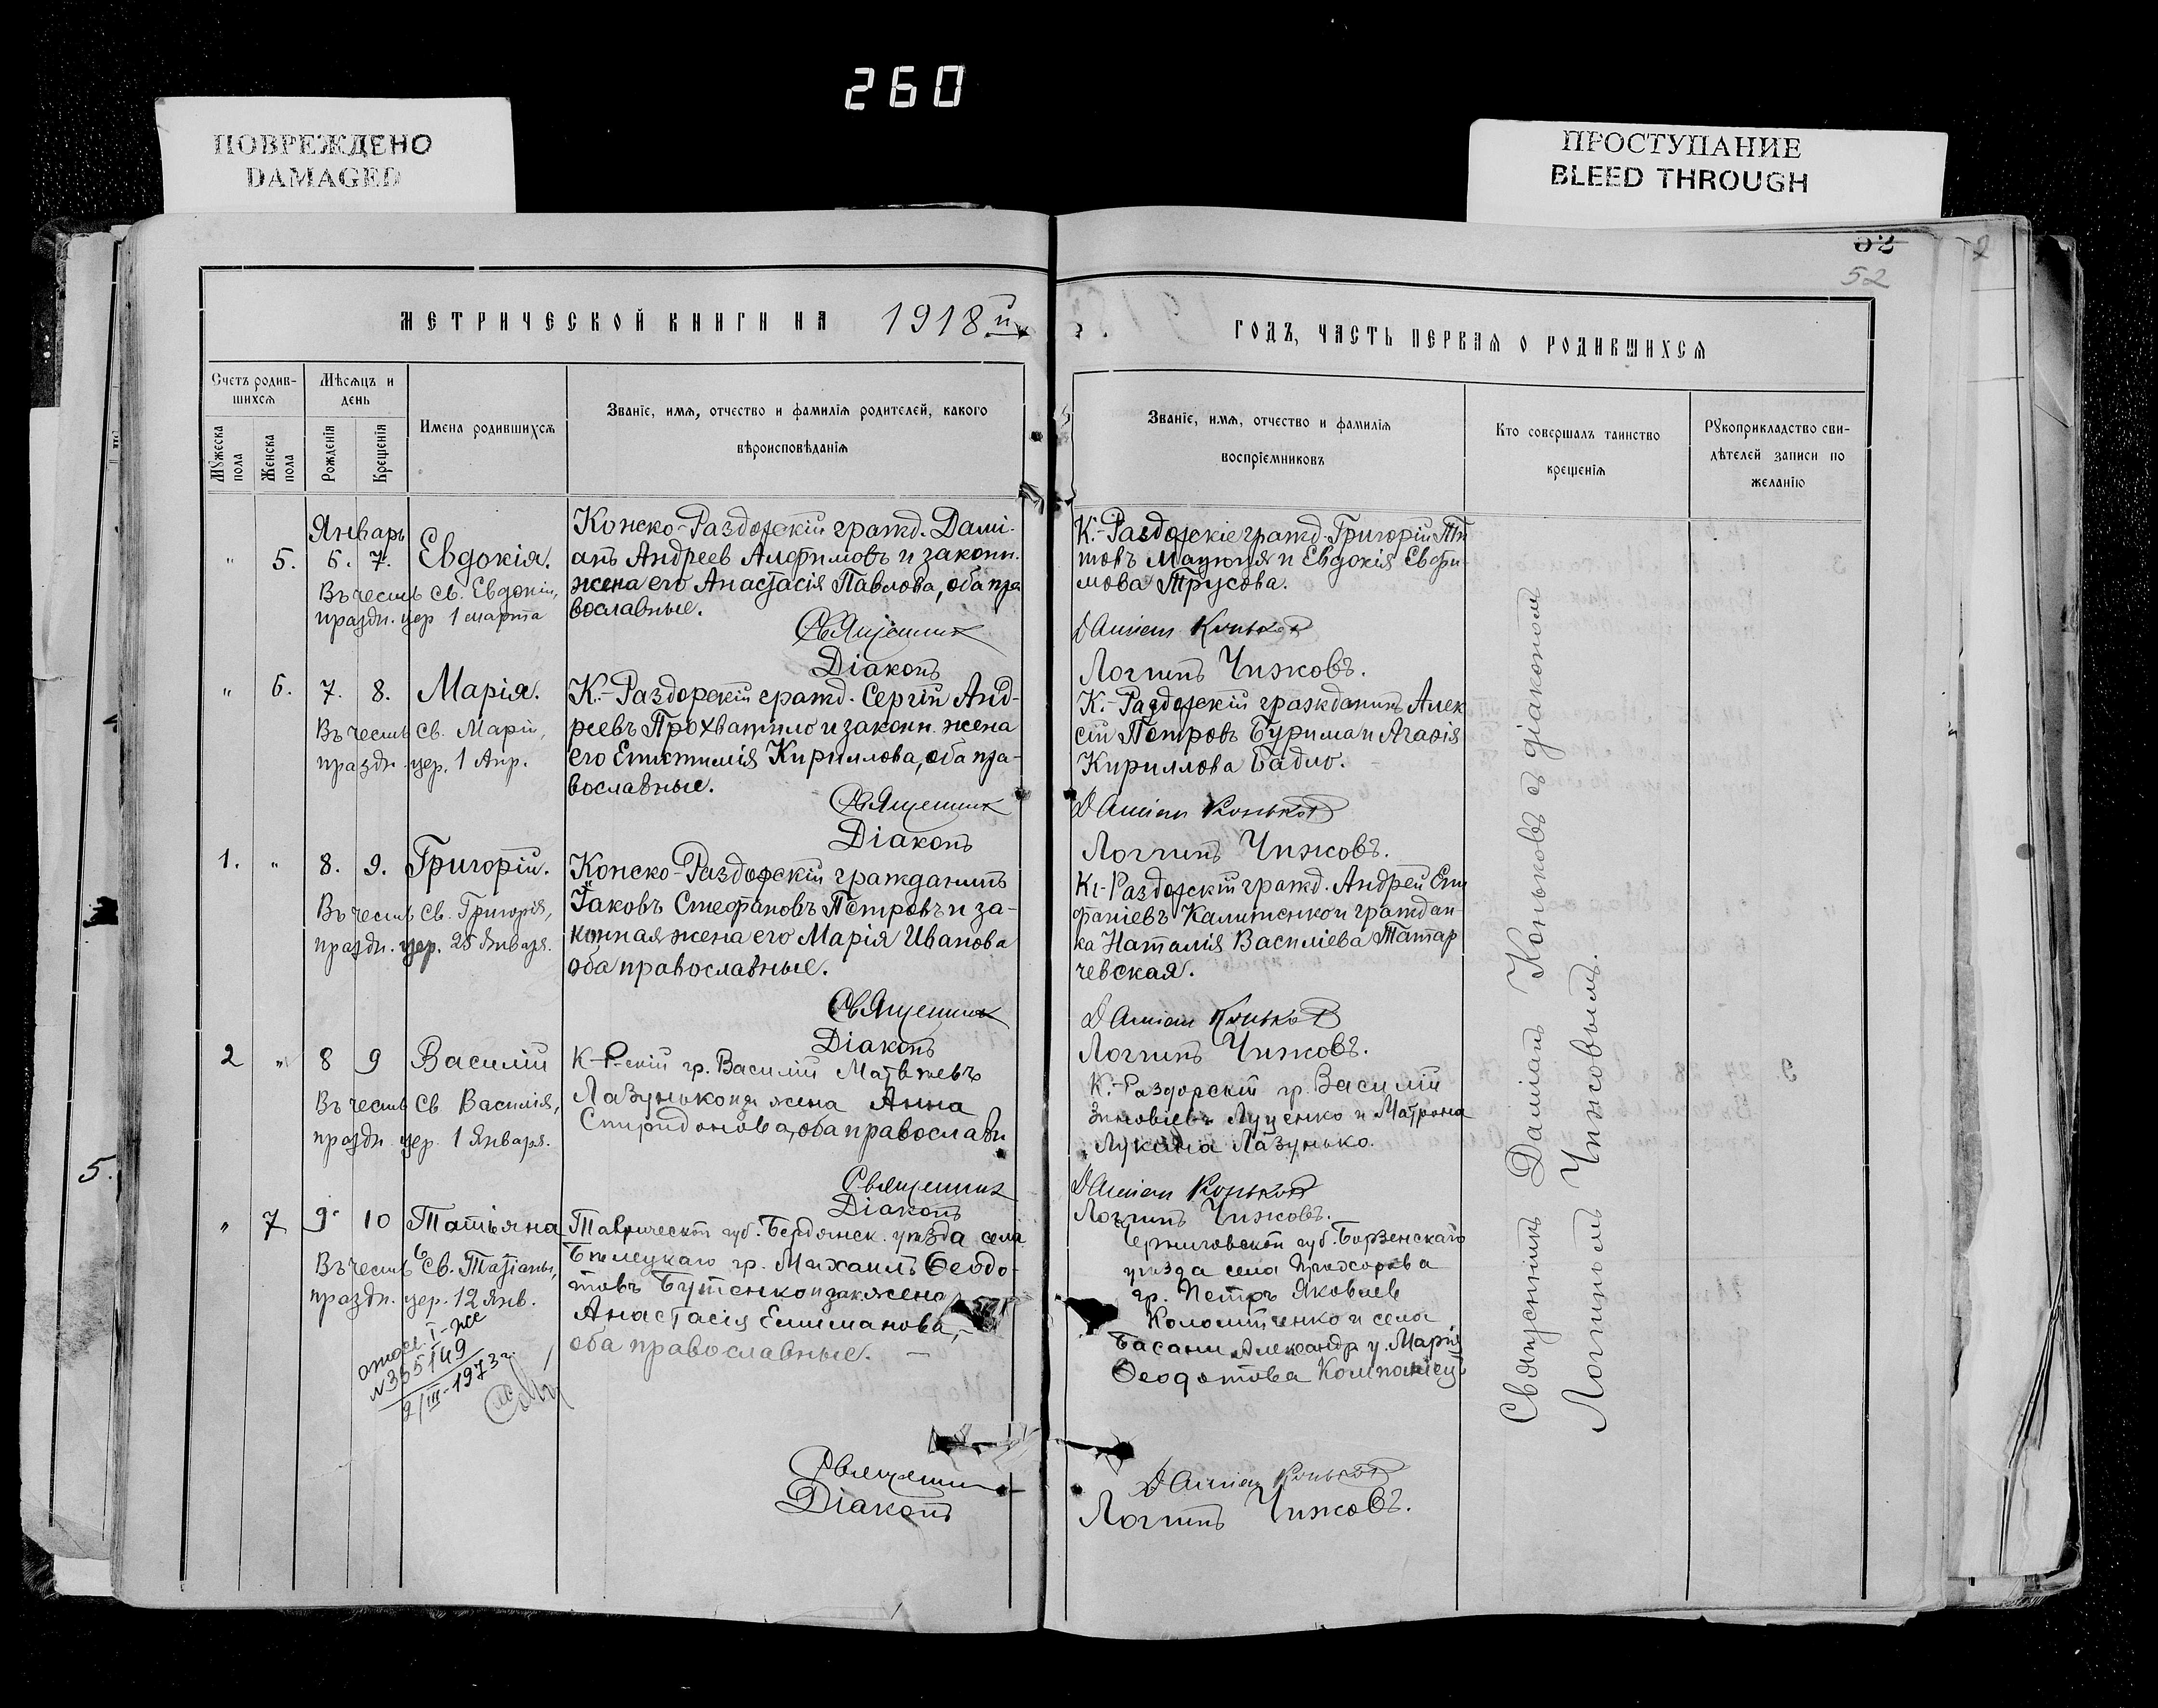 260
ПОВРЕЖДЕНО
DAMAGED
ПРОСТУПАНИЕ
BLEED THROUGH
52
МЕТРИЧЕСКОЙ КНИГИ НА 1918й
ГОДЪ, ЧАСТЬ ПЕРВАЯ О РОДИВШИХСЯ
Счетъ родив-
шихся
Мужеска пола
Женска пола
Мѣсяцъ и
день
Рожденія
Крещенія
Имена родившихся
Званіе, имя, отчество и фамилія родителей, какого
вѣроисповѣданія
Званіе, имя, отчество и фамилія
воспріемниковъ
Кто совершалъ таинство
крещенія
Рукоприкладство сви-
дѣтелей записи по
желанію
Январь
" 5. 6. 7. Евдокія.
Въ честь св. Евдокіи,
праздн. цер. 1 марта
Конско-Раздорскій гражд. Дамі-
анъ Андреев Алфимовъ и законн.
жена его Анастасія Павлова, оба пра
вославные.
Священник
Діаконъ
К.-Раздорскіе гражд. Григорій Ти
товъ и Евдокія Евфи-
мова Трусова.
Даміан Коньков
Логгинъ Чижовъ.
" 6. 7. 8. Марія.
Въ честь св. Маріи,
праздн. цер. 1 Апр.
К.-Раздорскій гражд. Сергій Анд-
реевъ Прохватило и законн. жена
его Епистимія Кириллова, оба пра-
вославные.
Священник
Діаконъ
К.-Раздорскій гражданинъ Алек
сій Петровъ Бурима и Агафія
Кириллова Бадло.
Даміан Коньков
Логгинъ Чижовъ.
1. " 8. 9. Григорій.
Въ честь св. Григорія,
праздн. цер. 25 Января.
Конско-Раздорскій гражданинъ
Іаковъ Стефановъ Петровъ и за-
конная жена его Марія Иванова
оба православные.
Священник
Діаконъ
К.-Раздорскій гражд. Андрей Епи
фаніевъ Калитенко и граждан-
ка Наталія Василіева Татар
чевская.
Даміан Коньков
Логгинъ Чижовъ.
2 " 8 9 Василій
Въ честь св Василія,
праздн. цер. 1 Января.
К-Р-скій гр. Василій Матвѣевъ
Лазунько и жена Анна
Спиридонова, оба православн
Священник
Діаконъ
К.-Раздорскій гр. Василій
Зиновіевъ Луценко и Матрона
Лукина Лазунько.
Даміан Коньков
Логгинъ Чижовъ.
5.
" 7 9 10 Татьяна
Въ честь Св. Татіаны,
праздн. цер. 12 Янв.
N 355149
2/III-1973 г.
Таврической губ. Бердянск. уѣзда села
Бѣлецкаго гр. Михаилъ Ѳеодо-
товъ Бутенко и зак. жена
Анастасія Елисианова,
оба православные. —
Черниговской губ. Борзенскаго
уѣзда села
гр. Петръ Яковлев
Коломійченко и села
Басани Александр у. Марія
Ѳеодотова Компаніец
Священник
Діаконъ
Даміан Коньков
Логгинъ Чижовъ.
Священникъ Даміанъ Коньковъ съ діакономъ
Логгиномъ Чижовымъ.